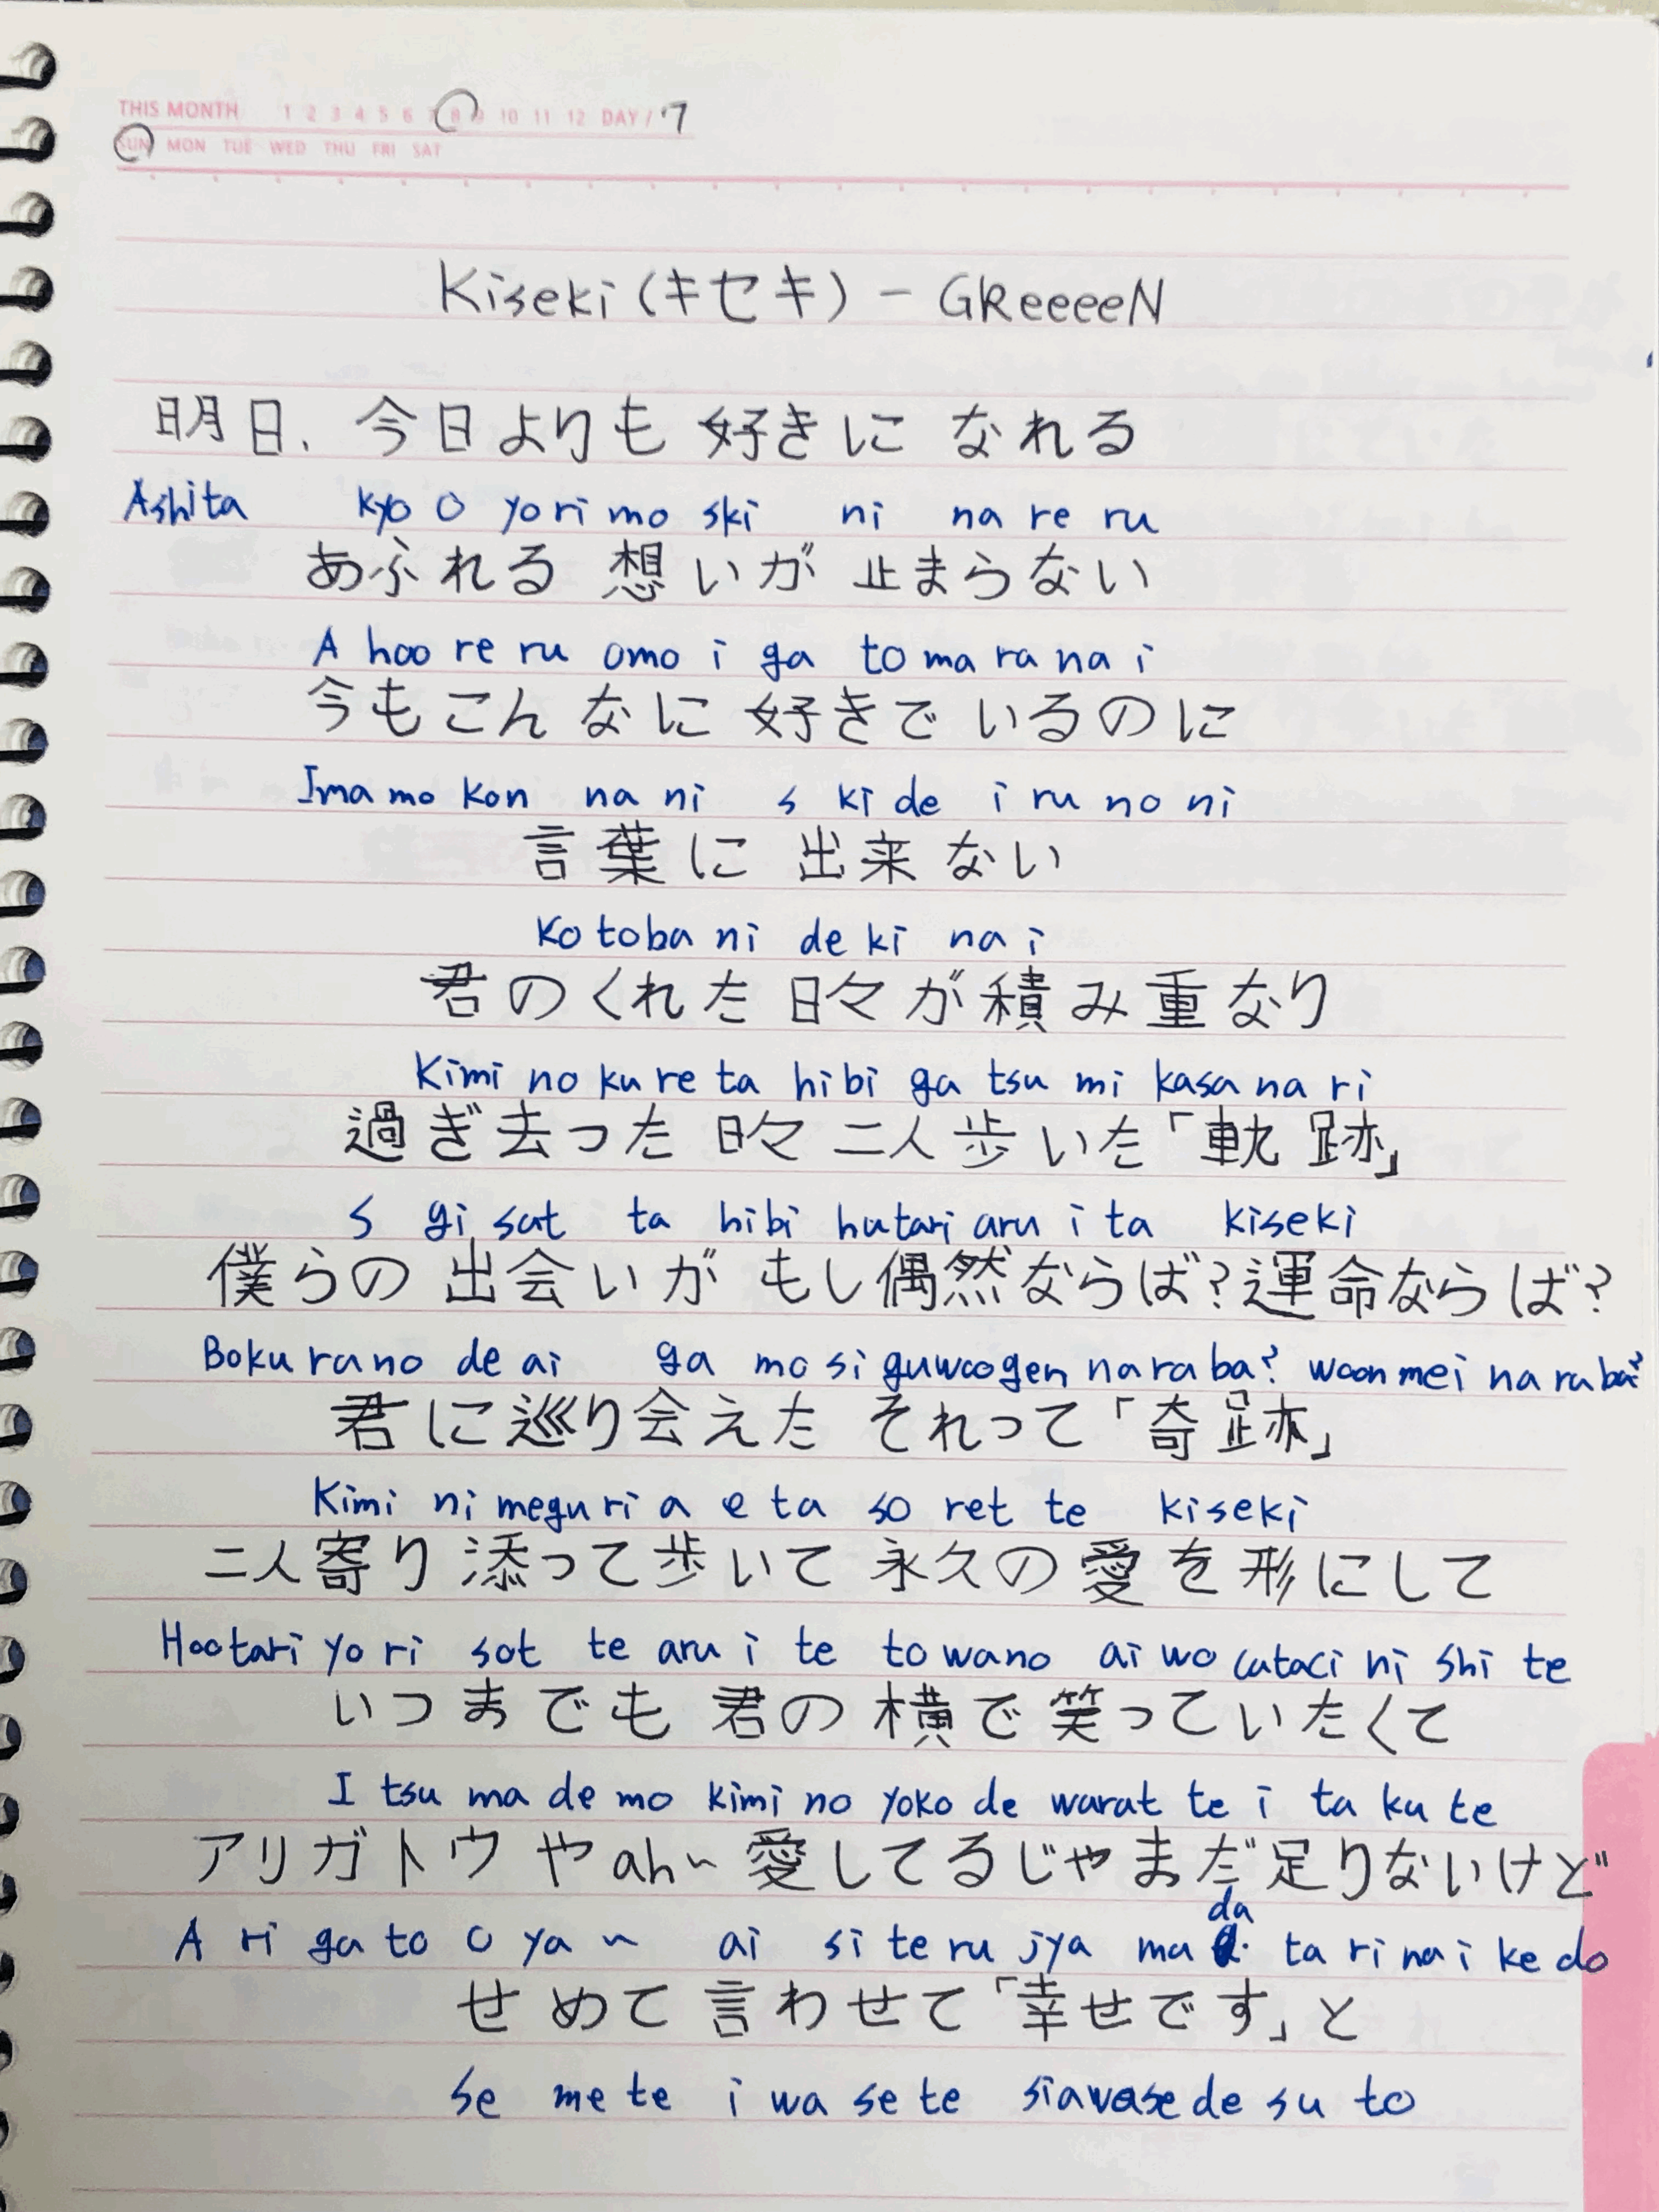 THIS MONTH 1 2 3 4 5 6 7 8 9 10 11 12 DAY/ 7
SUN MON TUE WED THU FRI SAT
Kiseki (キセキ) - GReeeeN
明日、今日よりも 好きに なれる
Ashita kyo o yori mo ski ni na re ru
あふれる 想いが 止まらない
A hoo re ru omo i ga to ma ra na i
今もこんなに 好きでいるのに
Ima mo kon na ni s ki de i ru no ni
言葉に 出来ない
Ko toba ni de ki na i
君のくれた 日々が積み重なり
Kimi no ku re ta hi bi ga tsu mi kasa na ri
過ぎ去った 日々 二人歩いた「軌跡」
S gi sat ta hi bi hutari aru i ta kiseki
僕らの 出会いが もし偶然ならば?運命ならば?
Boku ra no de ai ga mo si guwoogen na ra ba? woon mei na ra ba?
君に巡り会えた それって「奇跡」
Kimi ni megu ri a e ta so ret te kiseki
二人寄り添って歩いて 永久の愛を形にして
Hootari yo ri sot te aru i te to wano ai wo cataci ni shi te
いつまでも 君の横で笑っていたくて
I tsu ma de mo kimi no yoko de warat te i ta ku te
アリガトウ や ah~ 愛してるじゃまだ足りないけど
A ri ga to o ya ~ ai si te ru jya ma da ta ri na i ke do
せめて 言わせて「幸せです」と
Se me te i wa se te siawase de su to